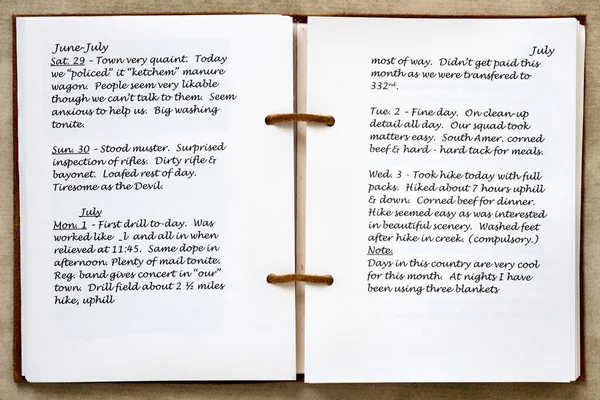 June-July
Sat. 29 – Town very quaint. Today
we “policed” it “ketchem” manure
wagon. People seem very likable
though we can’t talk to them. Seem
anxious to help us. Big washing
tonite.
Sun. 30 – Stood muster. Surprised
inspection of rifles. Dirty rifle &
bayonet. Loafed rest of day.
Tiresome as the Devil.
July
Mon. 1 – First drill to-day. Was
worked like _l and all in when
relieved at 11:45. Same dope in
afternoon. Plenty of mail tonite.
Reg. band gives concert in “our”
town. Drill field about 2 ½ miles
hike, uphill
July
most of way. Didn’t get paid this
month as we were transfered to
332nd.
Tue. 2 – Fine day. On clean-up
detail all day. Our squad took
matters easy. South Amer. corned
beef & hard - hard tack for meals.
Wed. 3 - Took hike today with full
packs. Hiked about 7 hours uphill
& down. Corned beef for dinner.
Hike seemed easy as was interested
in beautiful scenery. Washed feet
after hike in creek. (compulsory.)
Note.
Days in this country are very cool
for this month. At nights I have
been using three blankets